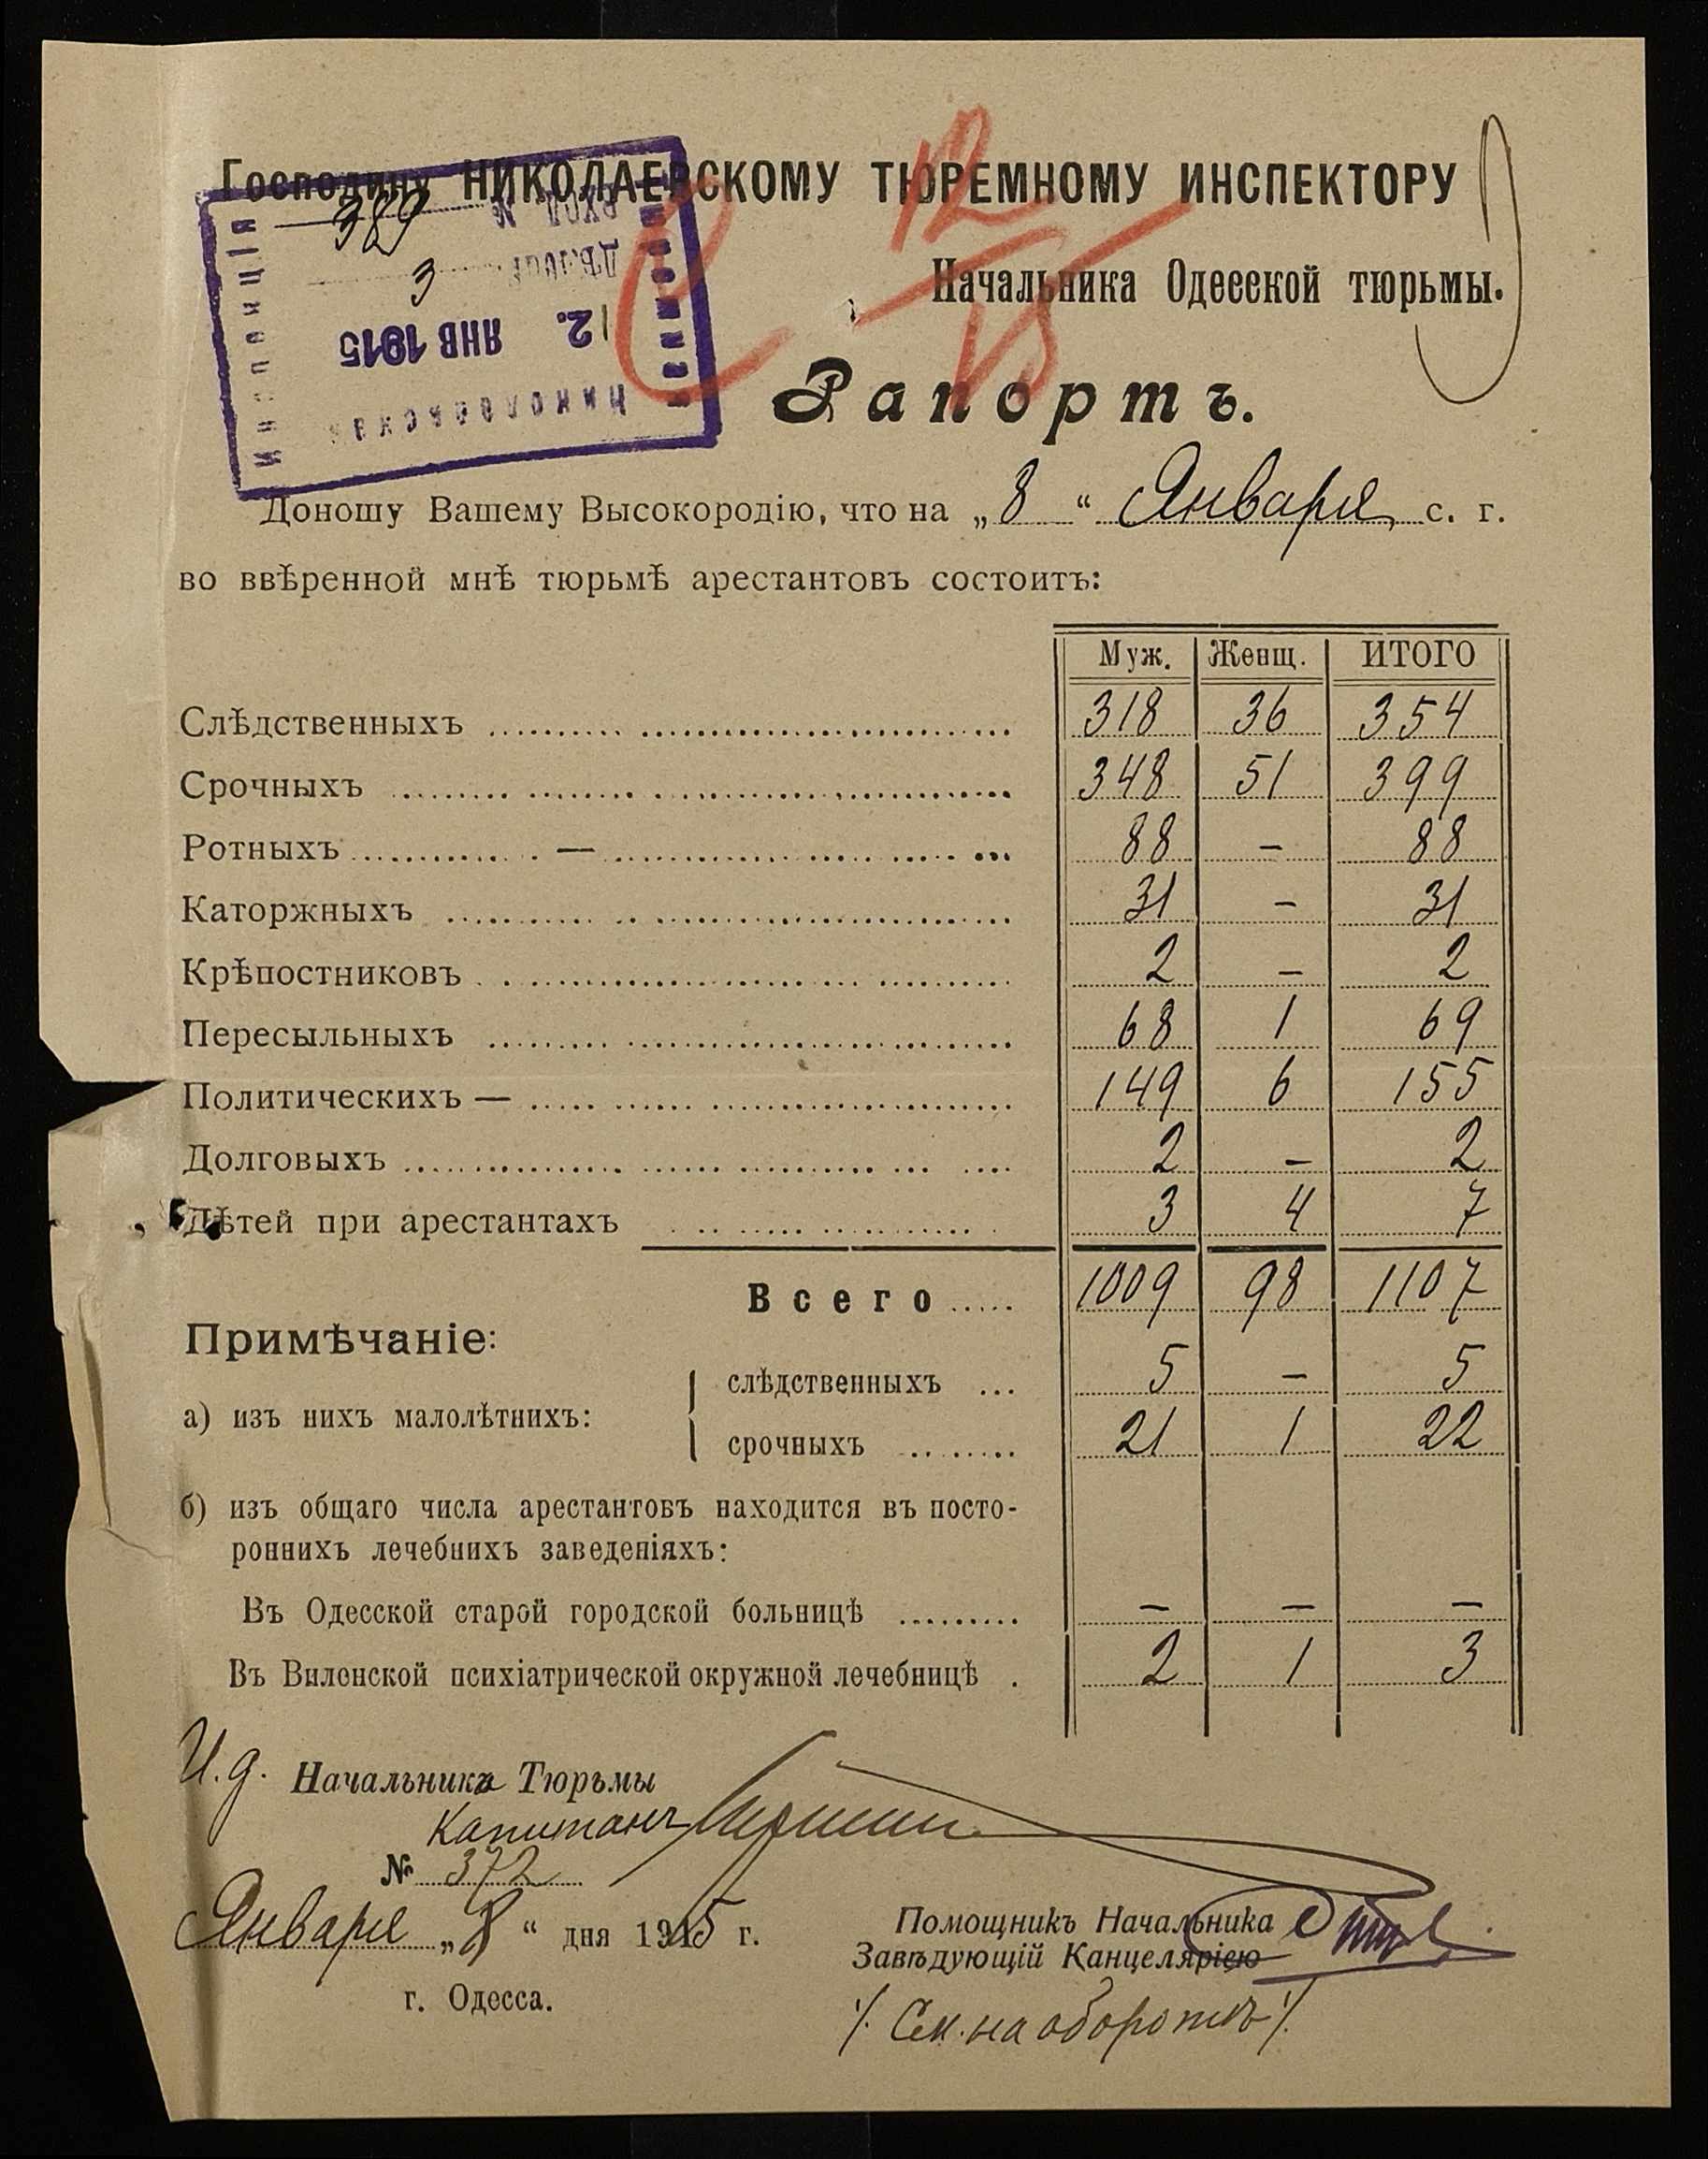 Господину НИКОЛАЕВСКОМУ ТЮРЕМНОМУ ИНСПЕКТОРУ
Николаевская
Тюремная
Инспекція
12. ЯНВ 1915
3
вход. №
389
12
15
Начальника Одесской тюрьмы.
Рапортъ.
Доношу Вашему Высокородію, что на „8“ Января с. г.
во ввѣренной мнѣ тюрьмѣ арестантовъ состоитъ:
Муж. Женщ. ИТОГО
Слѣдственныхъ 318 36 354
Срочныхъ 348 51 399
Ротныхъ — 88 — 88
Каторжныхъ 31 — 31
Крѣпостниковъ 2 — 2
Пересыльныхъ 68 1 69
Политическихъ — 149 6 155
Долговыхъ 2 — 2
Дѣтей при арестантахъ 3 4 7
Всего 1009 98 1107
Примѣчаніе:
а) изъ нихъ малолѣтнихъ:
слѣдственныхъ 5 — 5
срочныхъ 21 1 22
б) изъ общаго числа арестантовъ находится въ посто-
роннихъ лечебнихъ заведеніяхъ:
Въ Одесской старой городской больницѣ — — —
Въ Виленской психіатрической окружной лечебницѣ 2 1 3
И. д. Начальника Тюрьмы
Капитанъ
№ 372
Января „8“ дня 1915 г.
г. Одесса.
Помощникъ Начальника
Завѣдующій Канцеляріею
/. См. на оборотѣ /.